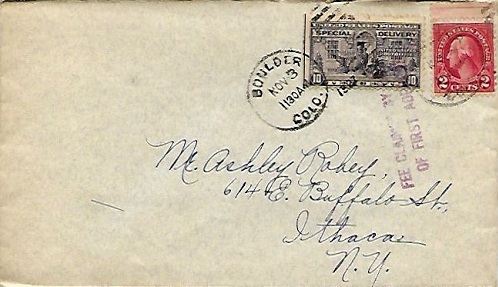 UNITED STATES POSTAGE
SPECIAL DELIVERY
10 10
UNITED STATES POSTAGE
2 CENTS 2
BOULDER
NOV 3
1130A
COLO.
FEE CLAIMED BY
OF FIRST
Mr. Ashley Robey,
614 E. Buffalo St.,
Ithaca
N.Y.